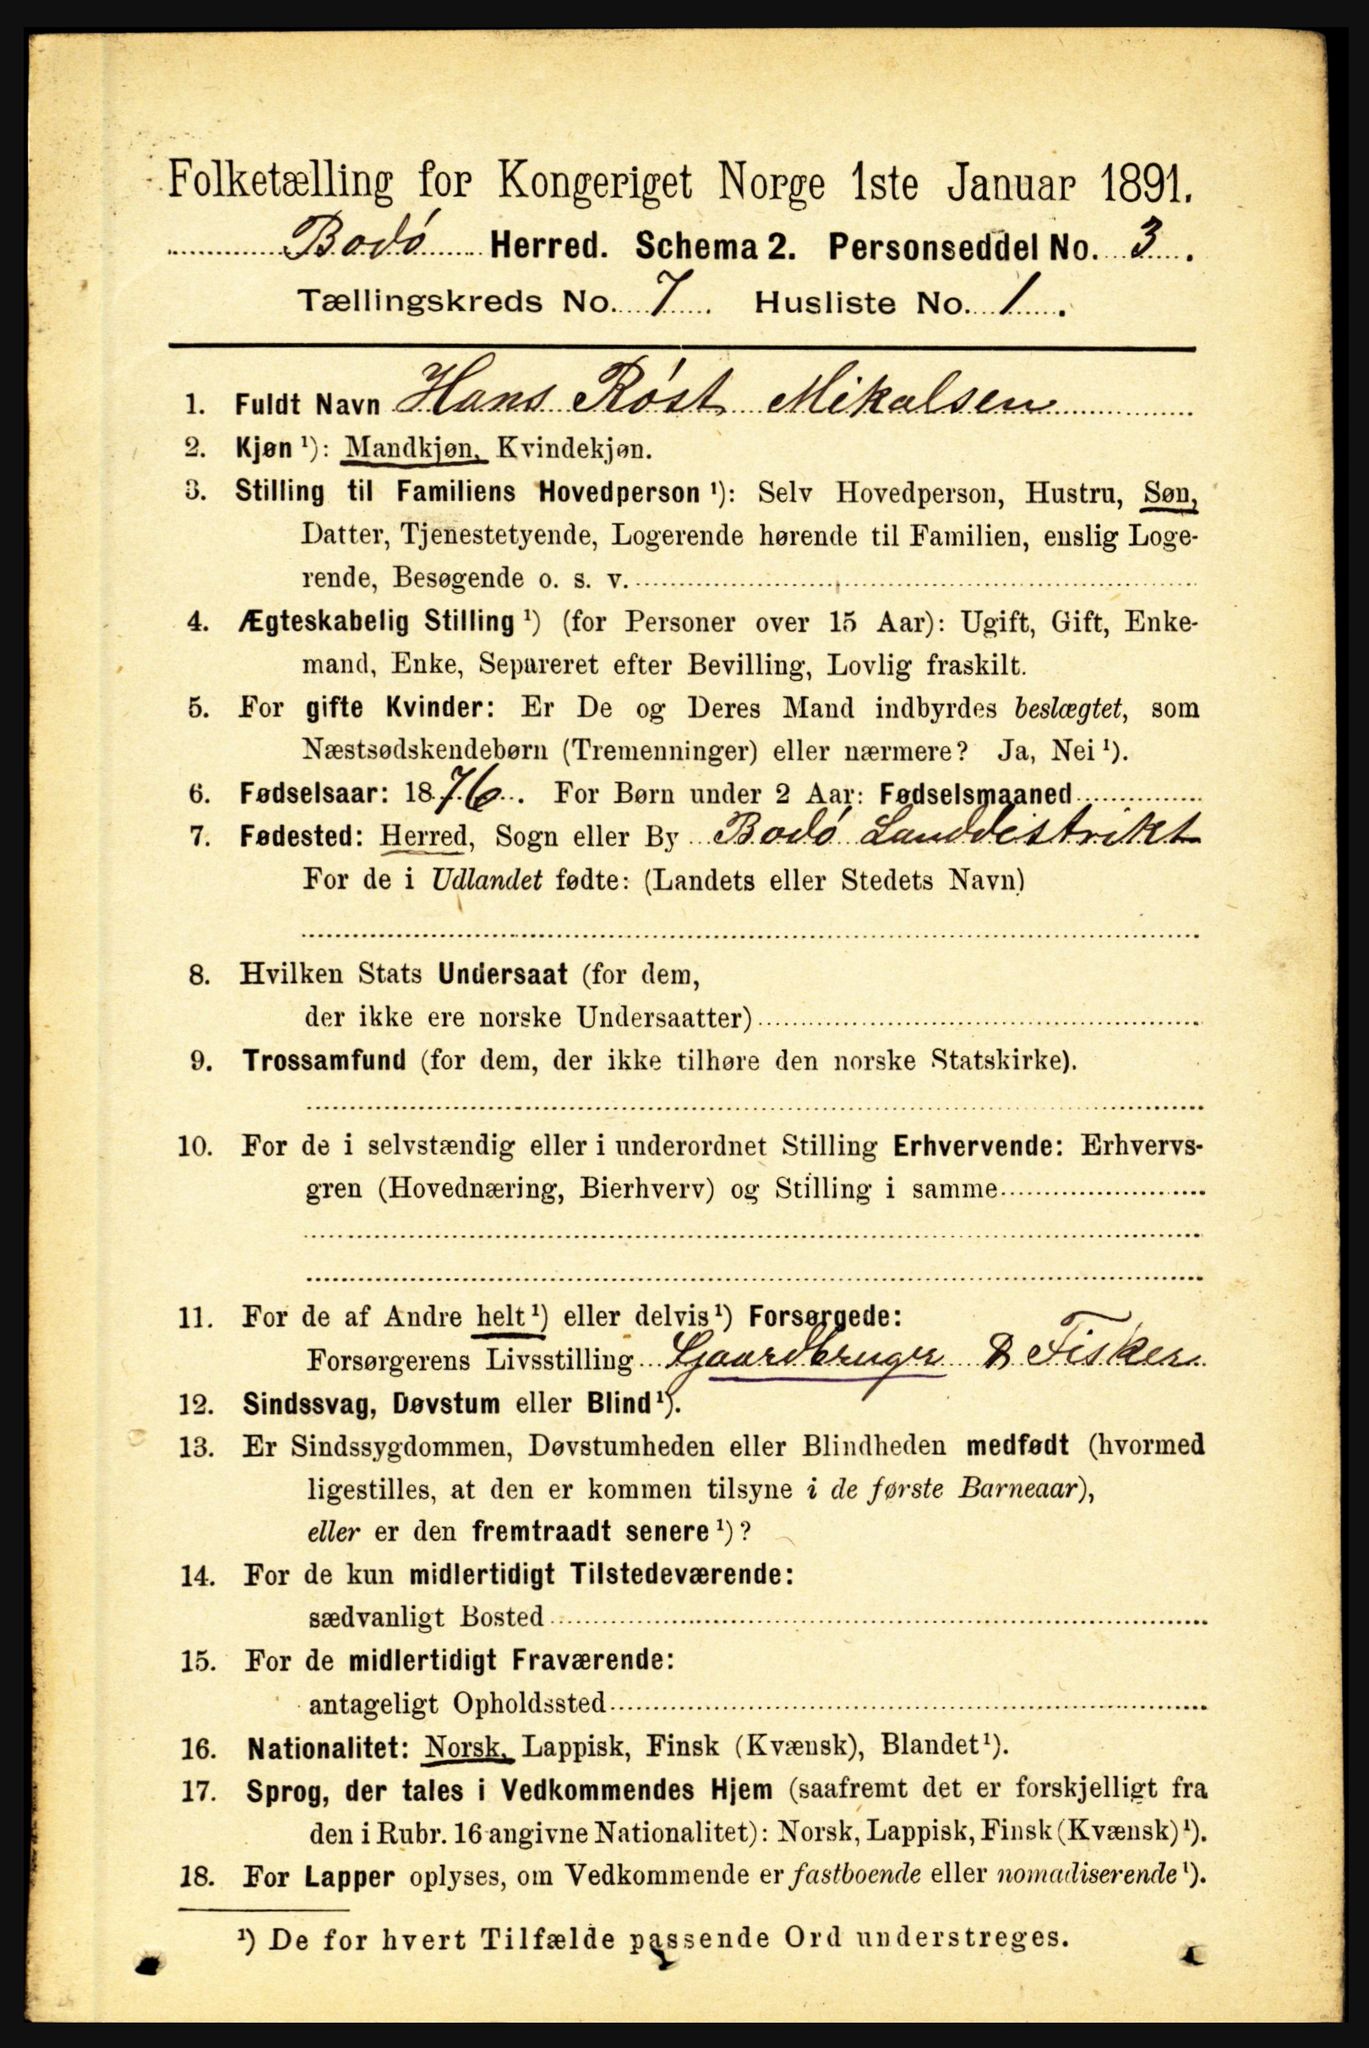 Folketælling for Kongeriget Norge 1ste Januar 1891.
Bodö Herred. Schema 2. Personseddel No. 3.
Tællingskreds No. 7. Husliste No. 1.
1. Fuldt Navn Hans Røst Mikalsen
2. Kjøn ¹): Mandkjøn, Kvindekjøn.
3. Stilling til Familiens Hovedperson ¹): Selv Hovedperson, Hustru, Søn,
Datter, Tjenestetyende, Logerende hørende til Familien, enslig Loge-
rende, Besøgende o. s. v.
4. Ægteskabelig Stilling ¹) (for Personer over 15 Aar): Ugift, Gift, Enke-
mand, Enke, Separeret efter Bevilling, Lovlig fraskilt.
5. For gifte Kvinder: Er De og Deres Mand indbyrdes beslægtet, som
Næstsødskendebørn (Tremenninger) eller nærmere? Ja, Nei ¹).
6. Fødselsaar: 1876. For Børn under 2 Aar: Fødselsmaaned
7. Fødested: Herred, Sogn eller By Bodö Landdistrikt
For de i Udlandet fødte: (Landets eller Stedets Navn)
8. Hvilken Stats Undersaat (for dem,
der ikke ere norske Undersaatter)
9. Trossamfund (for dem, der ikke tilhøre den norske Statskirke).
10. For de i selvstændig eller i underordnet Stilling Erhvervende: Erhvervs-
gren (Hovednæring, Bierhverv) og Stilling i samme
11. For de af Andre helt ¹) eller delvis ¹) Forsørgede:
Forsørgerens Livsstilling Gaardbruger & Fisker
12. Sindssvag, Døvstum eller Blind ¹).
13. Er Sindssygdommen, Døvstumheden eller Blindheden medfødt (hvormed
ligestilles, at den er kommen tilsyne i de første Barneaar),
eller er den fremtraadt senere ¹)?
14. For de kun midlertidigt Tilstedeværende:
sædvanligt Bosted
15. For de midlertidigt Fraværende:
antageligt Opholdssted
16. Nationalitet: Norsk, Lappisk, Finsk (Kvænsk), Blandet ¹).
17. Sprog, der tales i Vedkommendes Hjem (saafremt det er forskjelligt fra
den i Rubr. 16 angivne Nationalitet): Norsk, Lappisk, Finsk (Kvænsk) ¹).
18. For Lapper oplyses, om Vedkommende er fastboende eller nomadiserende ¹).
¹) De for hvert Tilfælde passende Ord understreges.